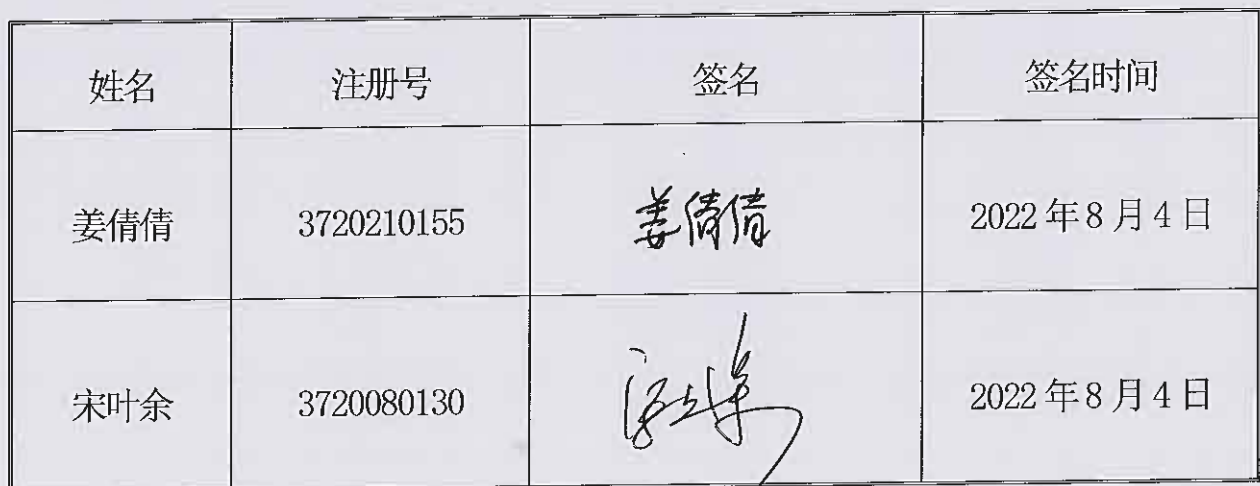 姓名 注册号 签名 签名时间
姜倩倩 3720210155 姜倩倩 2022年8月4日
宋叶余 3720080130 2022年8月4日